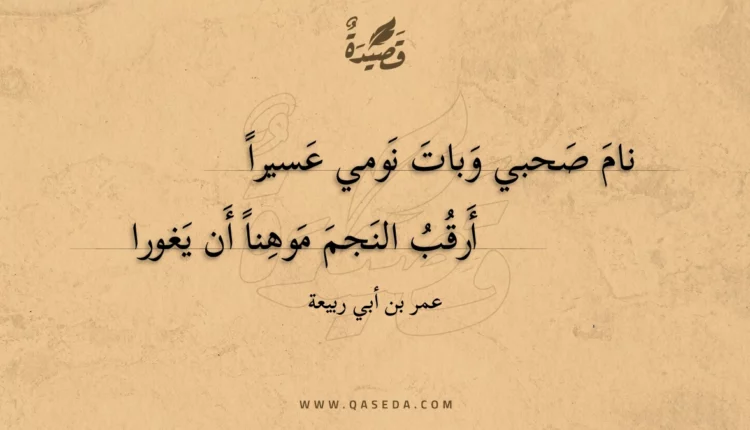 قَصِيْدَةٌ
نامَ صَحبي وَباتَ نَومي عَسيراً
أَرقُبُ النَجمَ مَوهِناً أَن يَغورا
عمر بن أبي ربيعة
WWW.QASEDA.COM